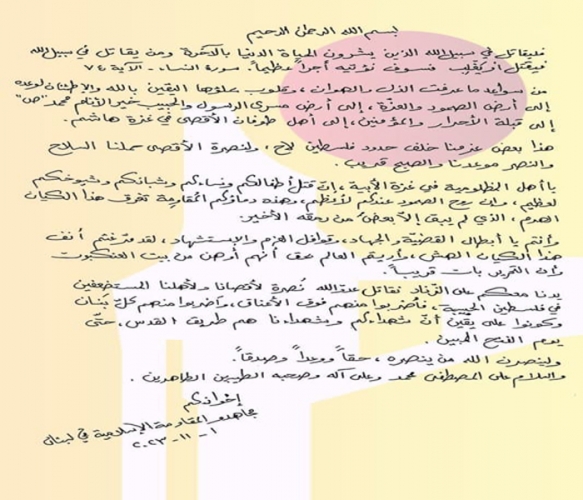 بسم الله الرحمن الرحيم
فليقاتل في سبيل الله الذين يشرون الحياة الدنيا بالآخرة ومن يقاتل في سبيل الله
فيقتل أو يغلب فسوف نؤتيه أجراً عظيماً. سورة النساء - الآية ٧٤
من سواعد ما عرفت الذل والهوان، وقلوب ملؤها اليقين بالله والاطمئنان لوعده
إلى أرض الصمود والعزّة، إلى أرض مسرى الرسول والحبيب خير الأنام محمد "ص"
إلى قبلة الأحرار والمؤمنين، إلى أهل طوفان الأقصى في غزة هاشم.
هذا بعض عزمنا خلف حدود فلسطين لاح، ولنصرة الأقصى حملنا السلاح
والنصر موعدنا والصبح قريب.
يا أهل المظلومية في غزة الأبية، إنّ قتل أطفالكم ونساءكم وشبانكم وشيوخكم
لعظيم، وإن روح الصمود عندكم لأعظم، وهذه دماؤكم المقاومة تغرق هذا الكيان
الهرم، الذي لم يبق إلا بعضٌ من رمقه الأخير.
وأنتم يا أبطال القضيّة والجهاد، وقوافل العزم والاستشهاد، لقد مرّغتم أنف
هذا الكيان الهش، وأريتم العالم حق أنهم أوهن من بيت العنكبوت
وأن التحرير بات قريباً.
يدنا معكم على الزّناد نقاتل عدوّ الله نُصرة لأقصانا ولأهلنا المستضعفين
في فلسطين الحبيبة. فاضربوا منهم فوق الأعناق، واضربوا منهم كلّ بنان
وكونوا على يقين أنّ شهداءكم وشهداءنا هم طريق القدس، حتّى
يوم الفتح المبين.
ولينصرنّ الله من ينصره، حقاً ووعداً وصدقاً.
والسلام على المصطفى محمد وعلى آله وصحبه الطيبين الطاهرين.
إخوانكم
مجاهدو المقاومة الإسلامية في لبنان
١ - ١١ - ٢٠٢٣